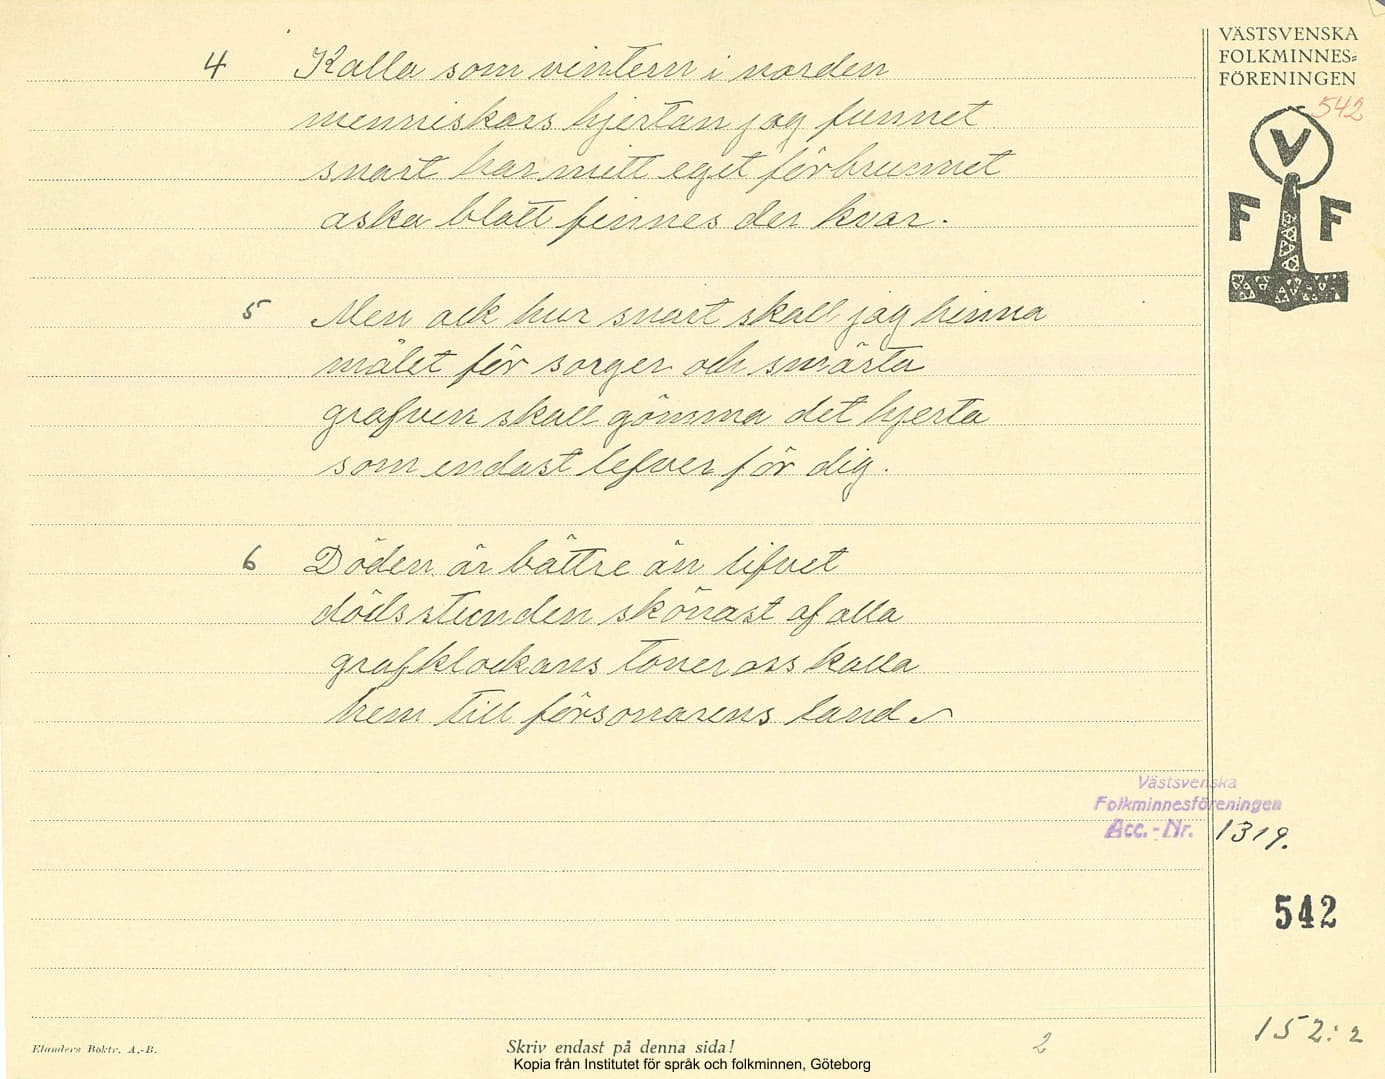 VÄSTSVENSKA
FOLKMINNES=
FÖRENINGEN
542
V
F F
4 Kalla som vintern i norden
menniskors hjertan jag funnet
snart har mitt eget förbrunnet
aska blott finnes der kvar.
5 Men ack hur snart skall jag hinna
målet för sorger och smärta
grafven skall gömma det hjerta
som endast lefver för dig.
6 Döden är bättre än lifvet
dödsstunden skönast af alla
grafklockans toner oss kalla
hem till försonarens land.
Västsvenska
Folkminnesföreningen
Acc.-Nr. 1319.
542
152:2
Elanders Boktr. A.-B.
Skriv endast på denna sida!
2
Kopia från Institutet för språk och folkminnen, Göteborg